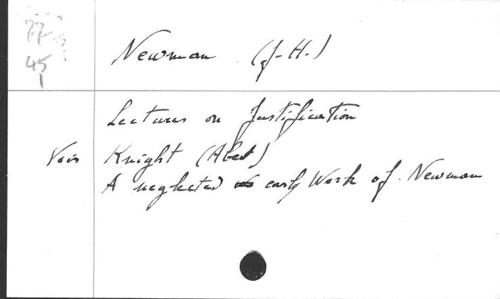 77-
45
1
Newman (J-H.)
Lectures on Justification
Voir Knight (Abel)
A neglected early Work of. Newman